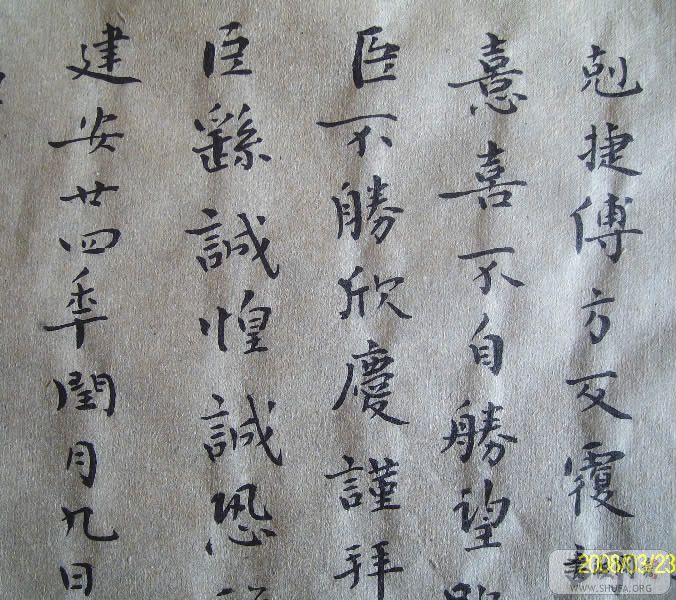 剋捷傅方反覆
憙喜不自勝望
臣不勝欣慶謹拜
臣繇誠惶誠恐
建安廿四秊閏月九日
2008/03/23
WWW.SHUFA.ORG